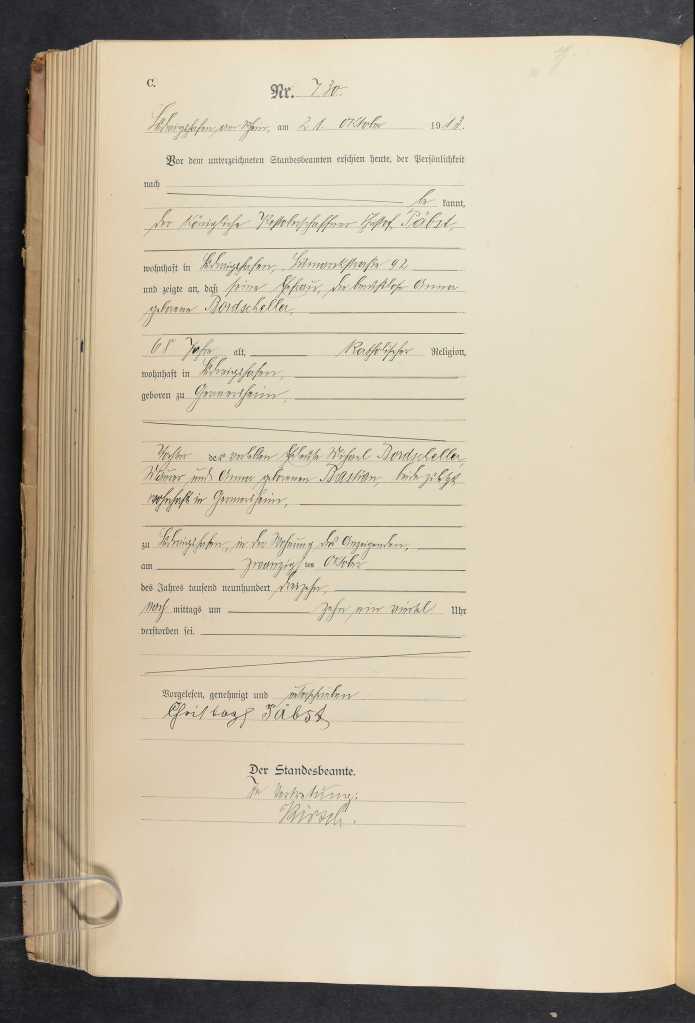 C.
Nr. 730.
Ludwigshafen am Rhein, am 21. Oktober 1913.
Vor dem unterzeichneten Standesbeamten erschien heute, der Persönlichkeit
nach
be kannt,
der Königliche Christof Päbst,
wohnhaft in Ludwigshafen, Bismarckstraße 92
und zeigte an, daß seine Ehefrau, die berufslose Anna
geborene Bordscheller,
68 Jahre alt, Katholischer Religion,
wohnhaft in Ludwigshafen,
geboren zu Germersheim,
Tochter der verlebten Eheleute Michael Bordscheller,
Maurer und Anna geborenen Bastian, beide zuletzt
wohnhaft in Germersheim,
zu Ludwigshafen, in der Wohnung des Anzeigenden,
am zwanzigsten Oktober
des Jahres tausend neunhundert dreizehn,
nach mittags um zehn ein viertel Uhr
verstorben sei.
Vorgelesen, genehmigt und unterschrieben
Christoph Päbst
Der Standesbeamte.
In Vertretung: